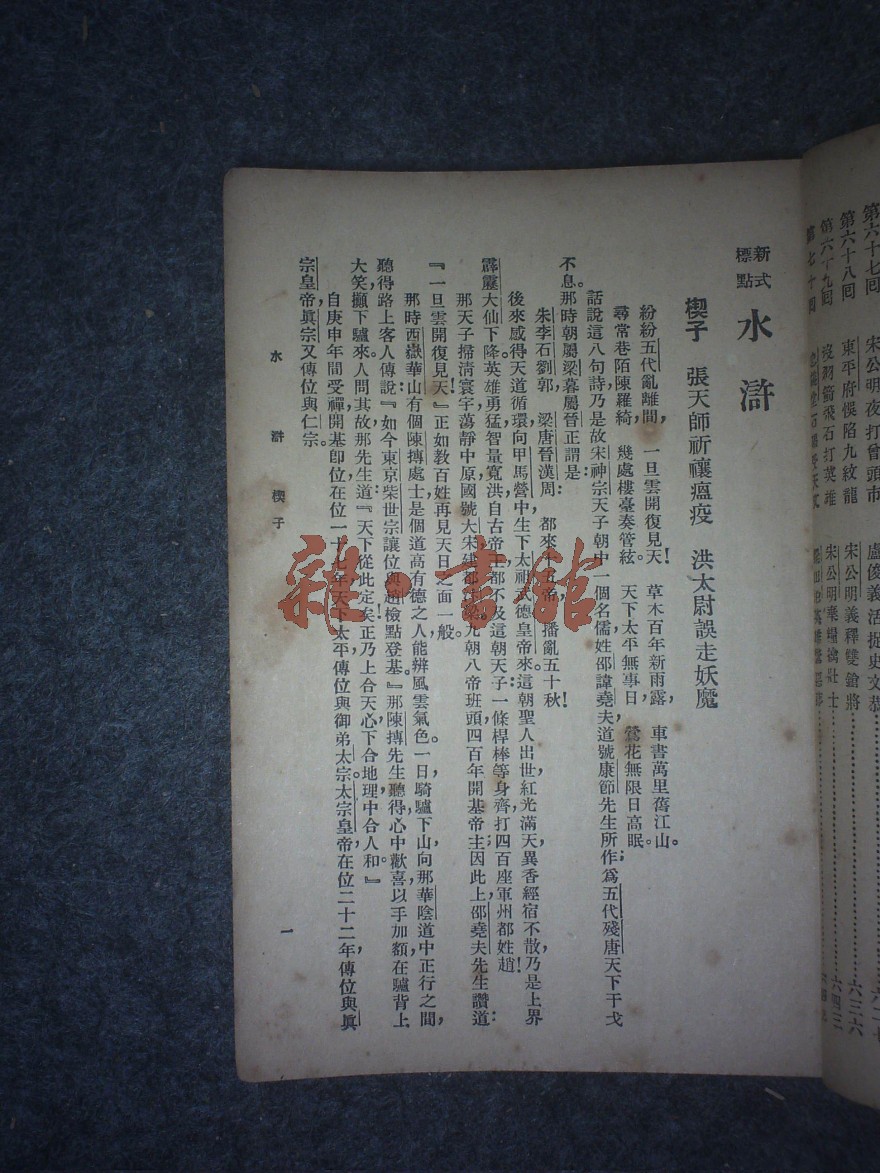 第六十七回　宋公明夜打曾頭市　盧俊義活捉史文恭
第六十八回　東平府悞陷九紋龍　宋公明義釋雙鎗將
第六十九回　沒羽箭飛石打英雄　宋公明棄糧擒壯士
第七十回
新式標點
水滸
楔子　張天師祈禳瘟疫　洪太尉誤走妖魔
紛紛五代亂離間，一旦雲開復見天！草木百年新雨露，車書萬里舊江山。
尋常巷陌陳羅綺，幾處樓臺奏管絃。天下太平無事日，鶯花無限日高眠。
話說這八句詩乃是故宋神宗天子朝中一個名儒姓邵諱堯夫道號康節先生所作；爲五代殘唐天下干戈
不息。那時朝屬梁暮屬晉正謂是：
朱李石劉郭，梁唐晉漢周，都來十五帝，播亂五十秋！
後來感得天道循環向甲馬營中生下太祖武德皇帝來。這朝聖人出世紅光滿天，異香經宿不散乃是上界
霹靂大仙下降。英雄勇猛智量寬洪自古帝王都不及這朝天子：一條桿棒等身齊，打四百座軍州都姓趙！
那天子掃清寰宇蕩靜中原，國號大宋建都汴梁。九朝八帝班頭，四百年開基帝主；因此上邵堯夫先生讚道：
『一旦雲開復見天！』正如教百姓再見天日之面一般。
那時西嶽華山有個陳摶處士是個道高有德之人能辨風雲氣色。一日，騎驢下山，向那華陰道中正行之間，
聽得路上客人傳說：『如今東京柴世宗讓位與趙檢點登基。』那陳摶先生聽得心中歡喜以手加額，在驢背上
大笑，攧下驢來。人問其故，那先生道：『天下從此定矣！正乃上合天心，下合地理，中合人和。』
自庚申年間受禪開基卽位在位一十七年，天下太平傳位與御弟太宗。太宗皇帝，在位二十二年，傳位與眞
宗皇帝，眞宗又傳位與仁宗。
水滸　楔子
一
六三六
六四三
雜·書館